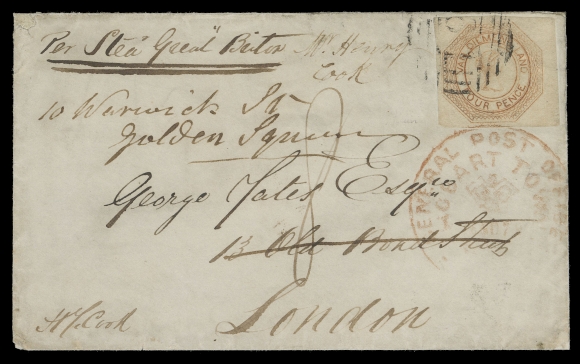 Per Stea Great" Briton Mr. Henry
Cook
VAN DIEMENS LAND
FOUR PENCE
10 Warwick St
Golden Square
GENERAL POST OFFICE
HOBART TOWN
George Yates Esqre
13 Old Bond Street
London
H. Cook
8